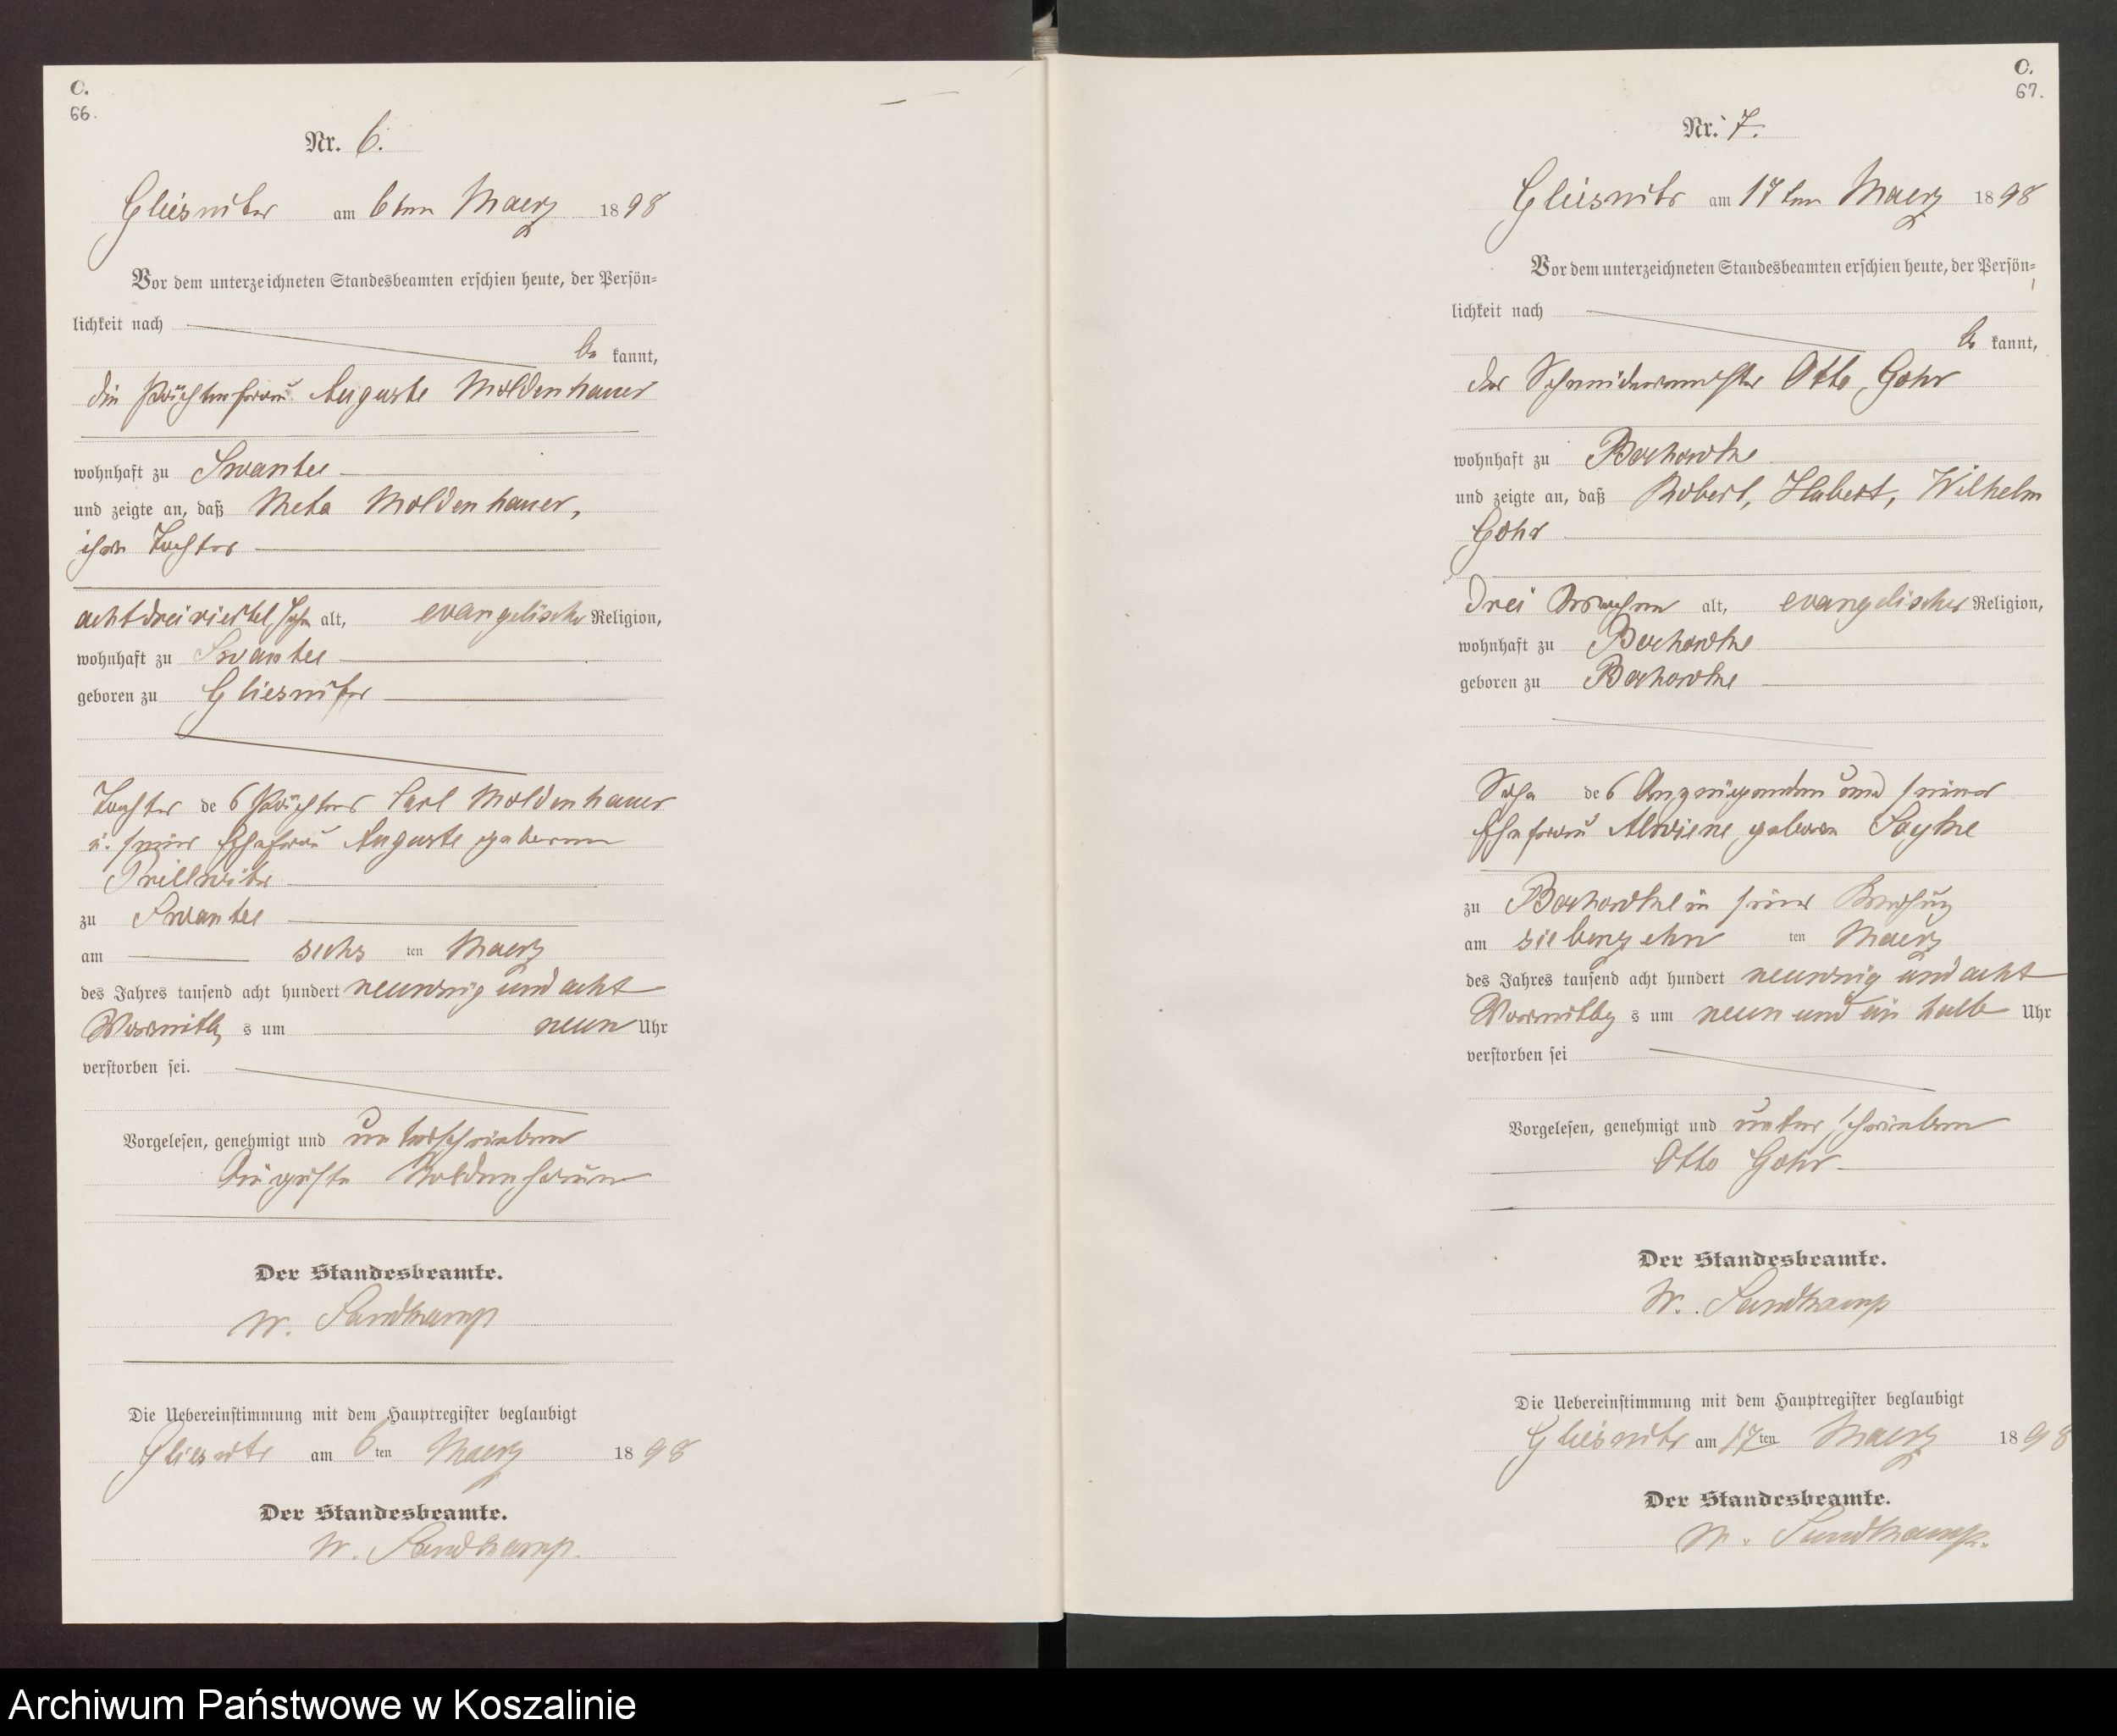 C.
66.
Nr. 6.
Gliesnitz am 6ten Maerz 1898
Vor dem unterzeichneten Standesbeamten erschien heute, der Persön-
lichkeit nach
be kannt,
die Pächterfrau Auguste Moldenhauer
wohnhaft zu Swantee
und zeigte an, daß Meta Moldenhauer,
ihre Tochter
achtdreiviertel Jahr alt, evangelischer Religion,
wohnhaft zu Swantee
geboren zu Gliesnitz
Tochter des Pächters Carl Moldenhauer
u. seiner Ehefrau Auguste geborene
Prillwitz
zu Swantee
am sechs ten Maerz
des Jahres tausend acht hundert neunzig und acht
Vormittag s um neun Uhr
verstorben sei.
Vorgelesen, genehmigt und unterschrieben
Auguste Moldenhauer
Der Standesbeamte.
W. Sandkamp
Die Uebereinstimmung mit dem Hauptregister beglaubigt
Gliesnitz am 6ten Maerz 1898
Der Standesbeamte.
W. Sandkamp.
C.
67.
Nr. 7.
Gliesnitz am 17ten Maerz 1898
Vor dem unterzeichneten Standesbeamten erschien heute, der Persön-
lichkeit nach
be kannt,
der Schneidermeister Otto Gohr
wohnhaft zu
und zeigte an, daß Robert, Hubert, Wilhelm
Gohr
drei Wochen alt, evangelischer Religion,
wohnhaft zu
geboren zu
Sohn des Anzeigenden und seiner
Ehefrau Alwiene, geborene
zu in seiner Behausung
am siebenzehn ten Maerz
des Jahres tausend acht hundert neunzig und acht
Vormittag s um neun und ein halb Uhr
verstorben sei
Vorgelesen, genehmigt und unterschrieben
Otto Gohr
Der Standesbeamte.
W. Sandkamp
Die Uebereinstimmung mit dem Hauptregister beglaubigt
Gliesnitz am 17ten Maerz 1898
Der Standesbeamte.
W. Sandkamp.
Archiwum Państwowe w Koszalinie